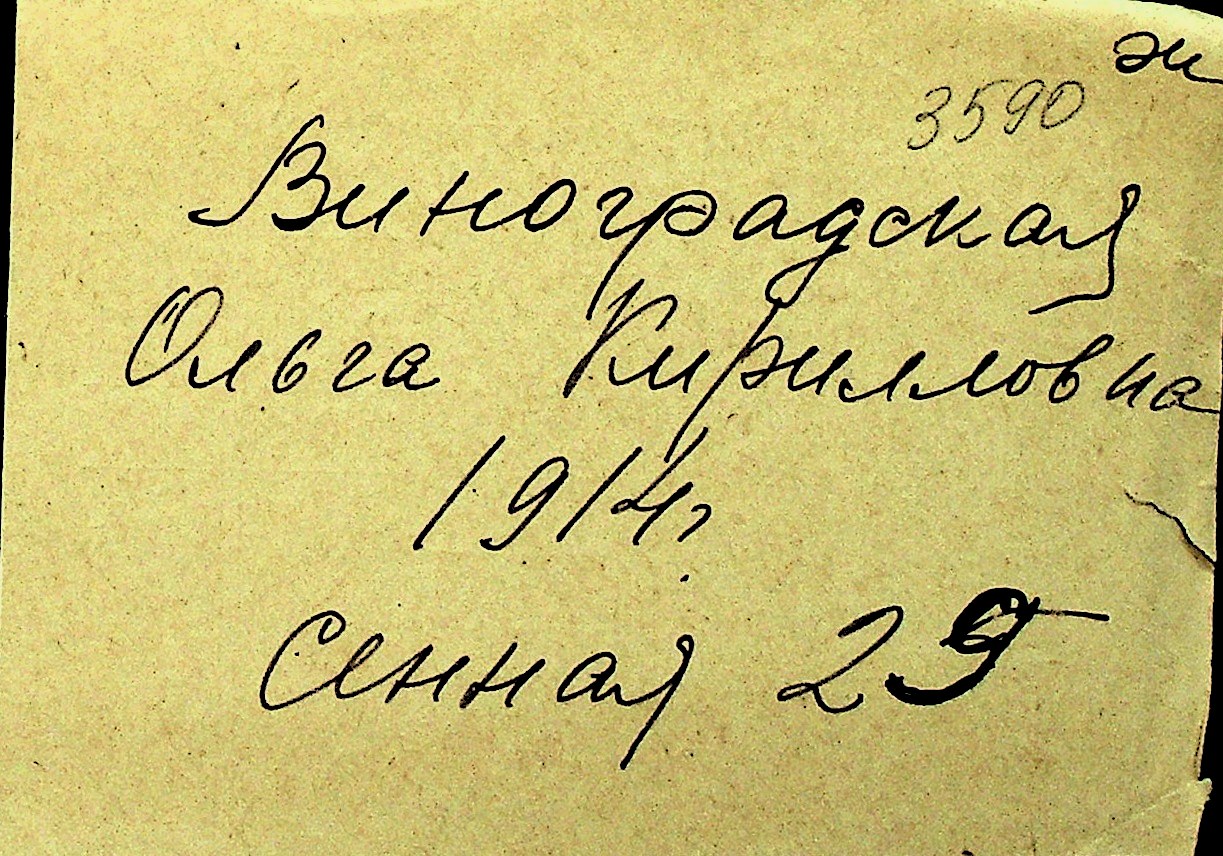 3590
Виноградская
Ольга Кирилловна
1914г
Сенная